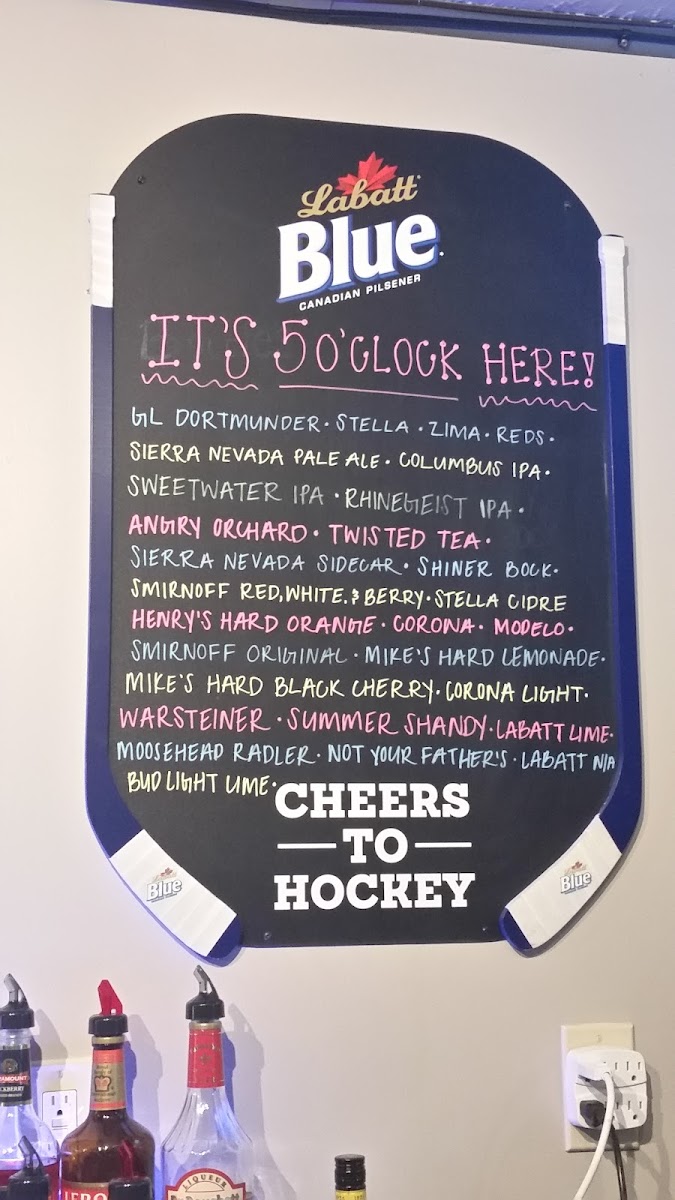 Labatt
Blue
CANADIAN PILSENER
IT'S 5 O'CLOCK HERE!
GL DORTMUNDER · STELLA · ZIMA · REDS ·
SIERRA NEVADA PALE ALE · COLUMBUS IPA ·
SWEETWATER IPA · RHINEGEIST IPA ·
ANGRY ORCHARD · TWISTED TEA ·
SIERRA NEVADA SIDECAR · SHINER BOCK ·
SMIRNOFF RED, WHITE, & BERRY · STELLA CIDRE
HENRY'S HARD ORANGE · CORONA · MODELO ·
SMIRNOFF ORIGINAL · MIKE'S HARD LEMONADE ·
MIKE'S HARD BLACK CHERRY · CORONA LIGHT ·
WARSTEINER · SUMMER SHANDY · LABATT LIME ·
MOOSEHEAD RADLER · NOT YOUR FATHER'S · LABATT N/A
BUD LIGHT LIME ·
CHEERS
TO
HOCKEY
Blue
Blue
LIQUEUR